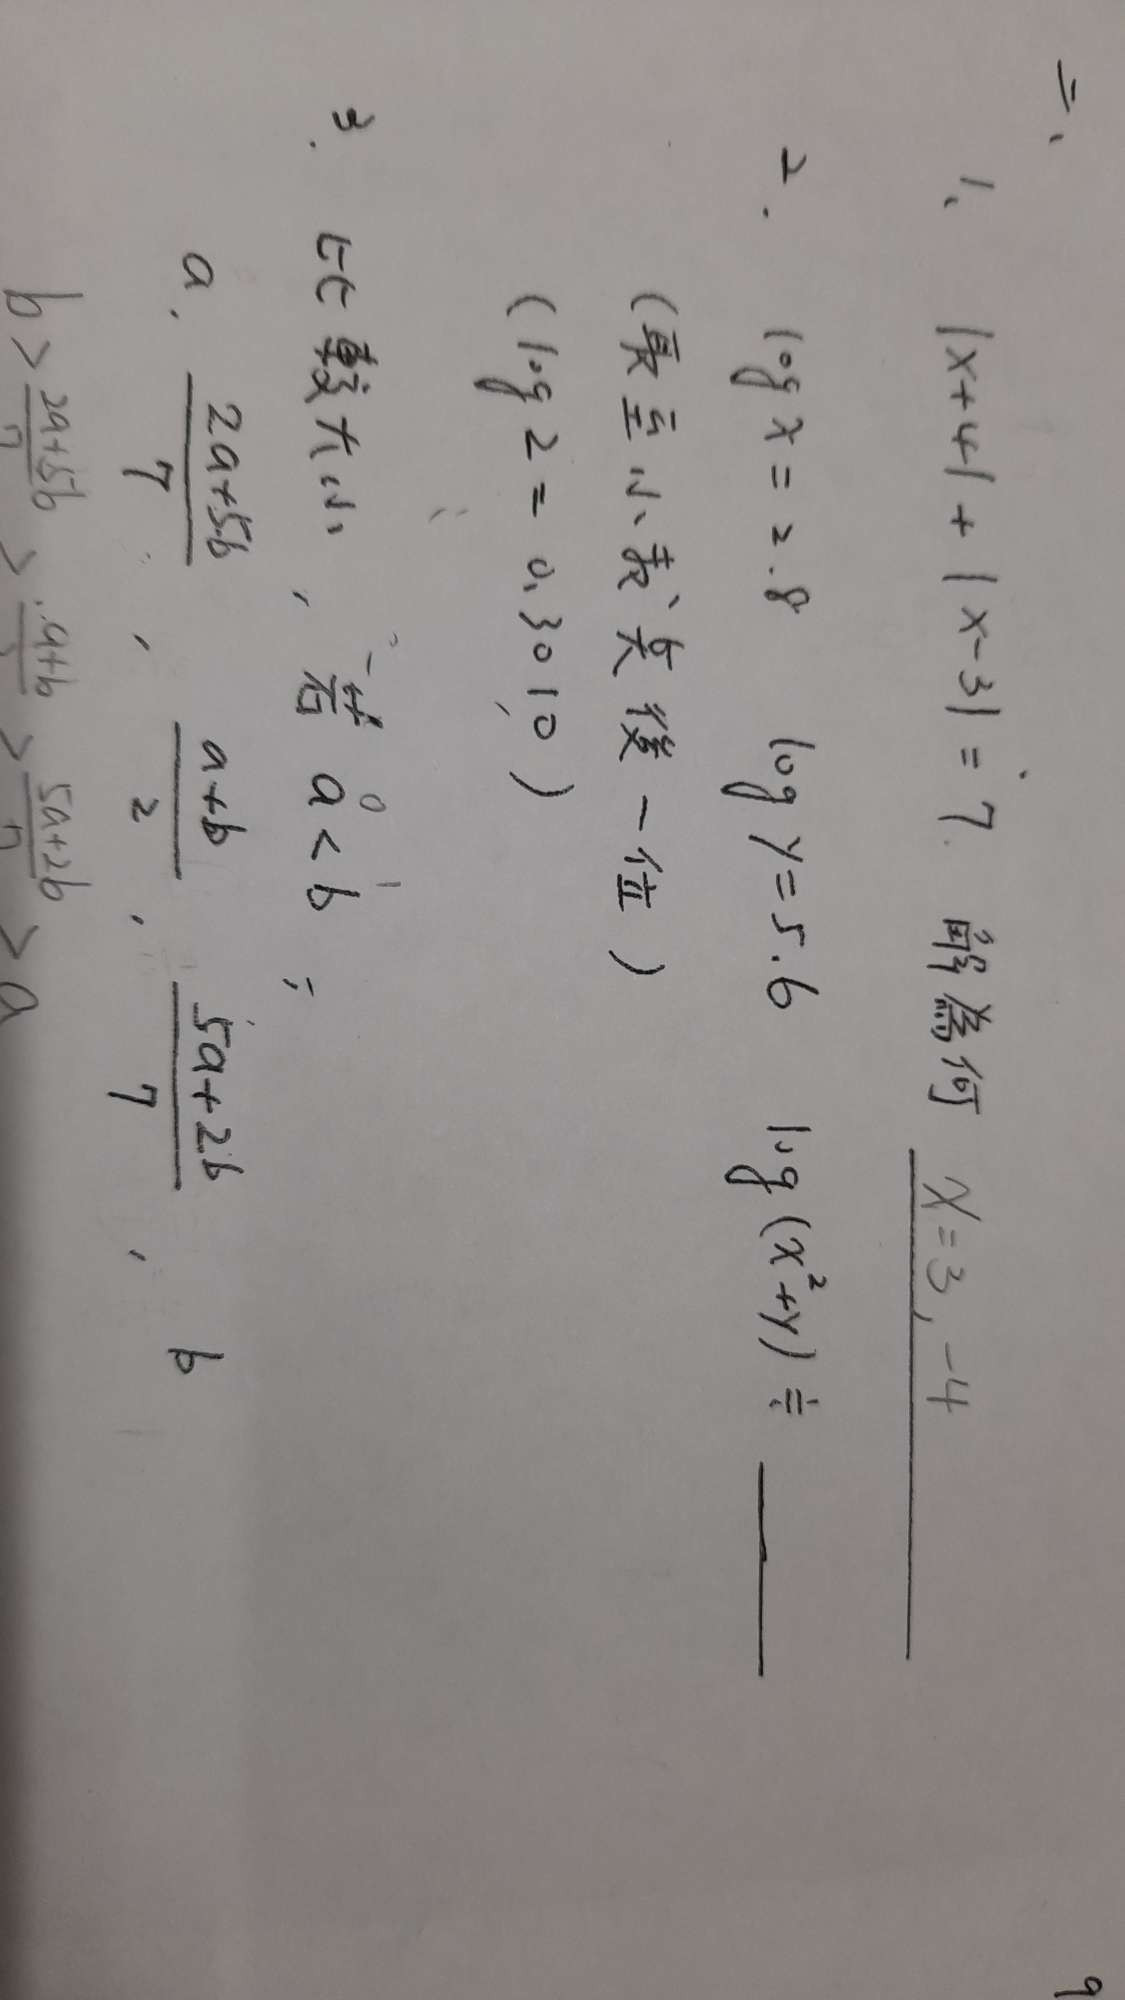 二、
1、 |x+4|+|x-3|=7. 解為何 x=3,-4
2. log x=2.8 log y=5.6 log(x²+y)≒
(取至小数點後一位)
(log 2=0.3010)
3. 比較大小,若 a<b ;
0 1
a. 2a+5b/7 , a+b/2 , 5a+2b/7 , b
b > 2a+5b/7 > a+b > 5a+2b/7 > a
9